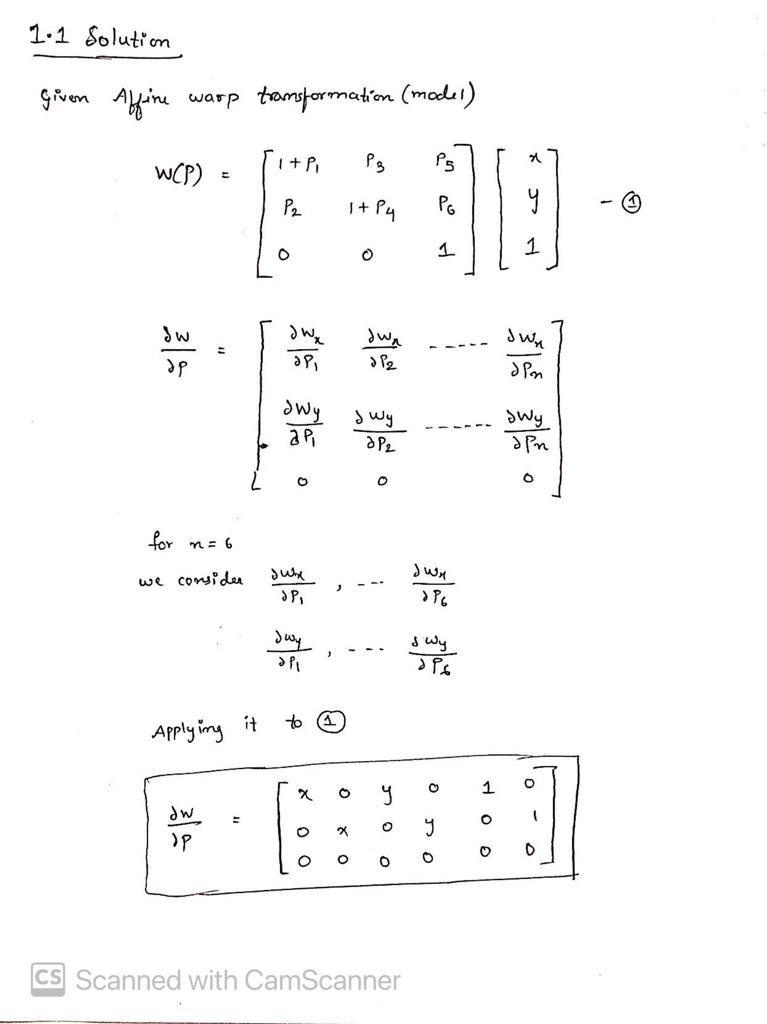 1.1 Solution
Given Affine warp transformation (model)
W(P) = [ 1+P₁ P₃ P₅ ] [ x ]
[ P₂ 1+P₄ P₆ ] [ y ] - ①
[ 0 0 1 ] [ 1 ]
∂W/∂P = [ ∂Wₓ/∂P₁ ∂Wₓ/∂P₂ ------ ∂Wₓ/∂Pₙ ]
[ ∂Wy/∂P₁ ∂Wy/∂P₂ ------ ∂Wy/∂Pₙ ]
[ 0 0 0 ]
for n = 6
we consider ∂Wₓ/∂P₁ , --- ∂Wₓ/∂P₆
∂Wy/∂P₁ , --- ∂Wy/∂P₆
Applying it to ①
∂W/∂P = [ x 0 y 0 1 0 ]
[ 0 x 0 y 0 1 ]
[ 0 0 0 0 0 0 ]
CS Scanned with CamScanner